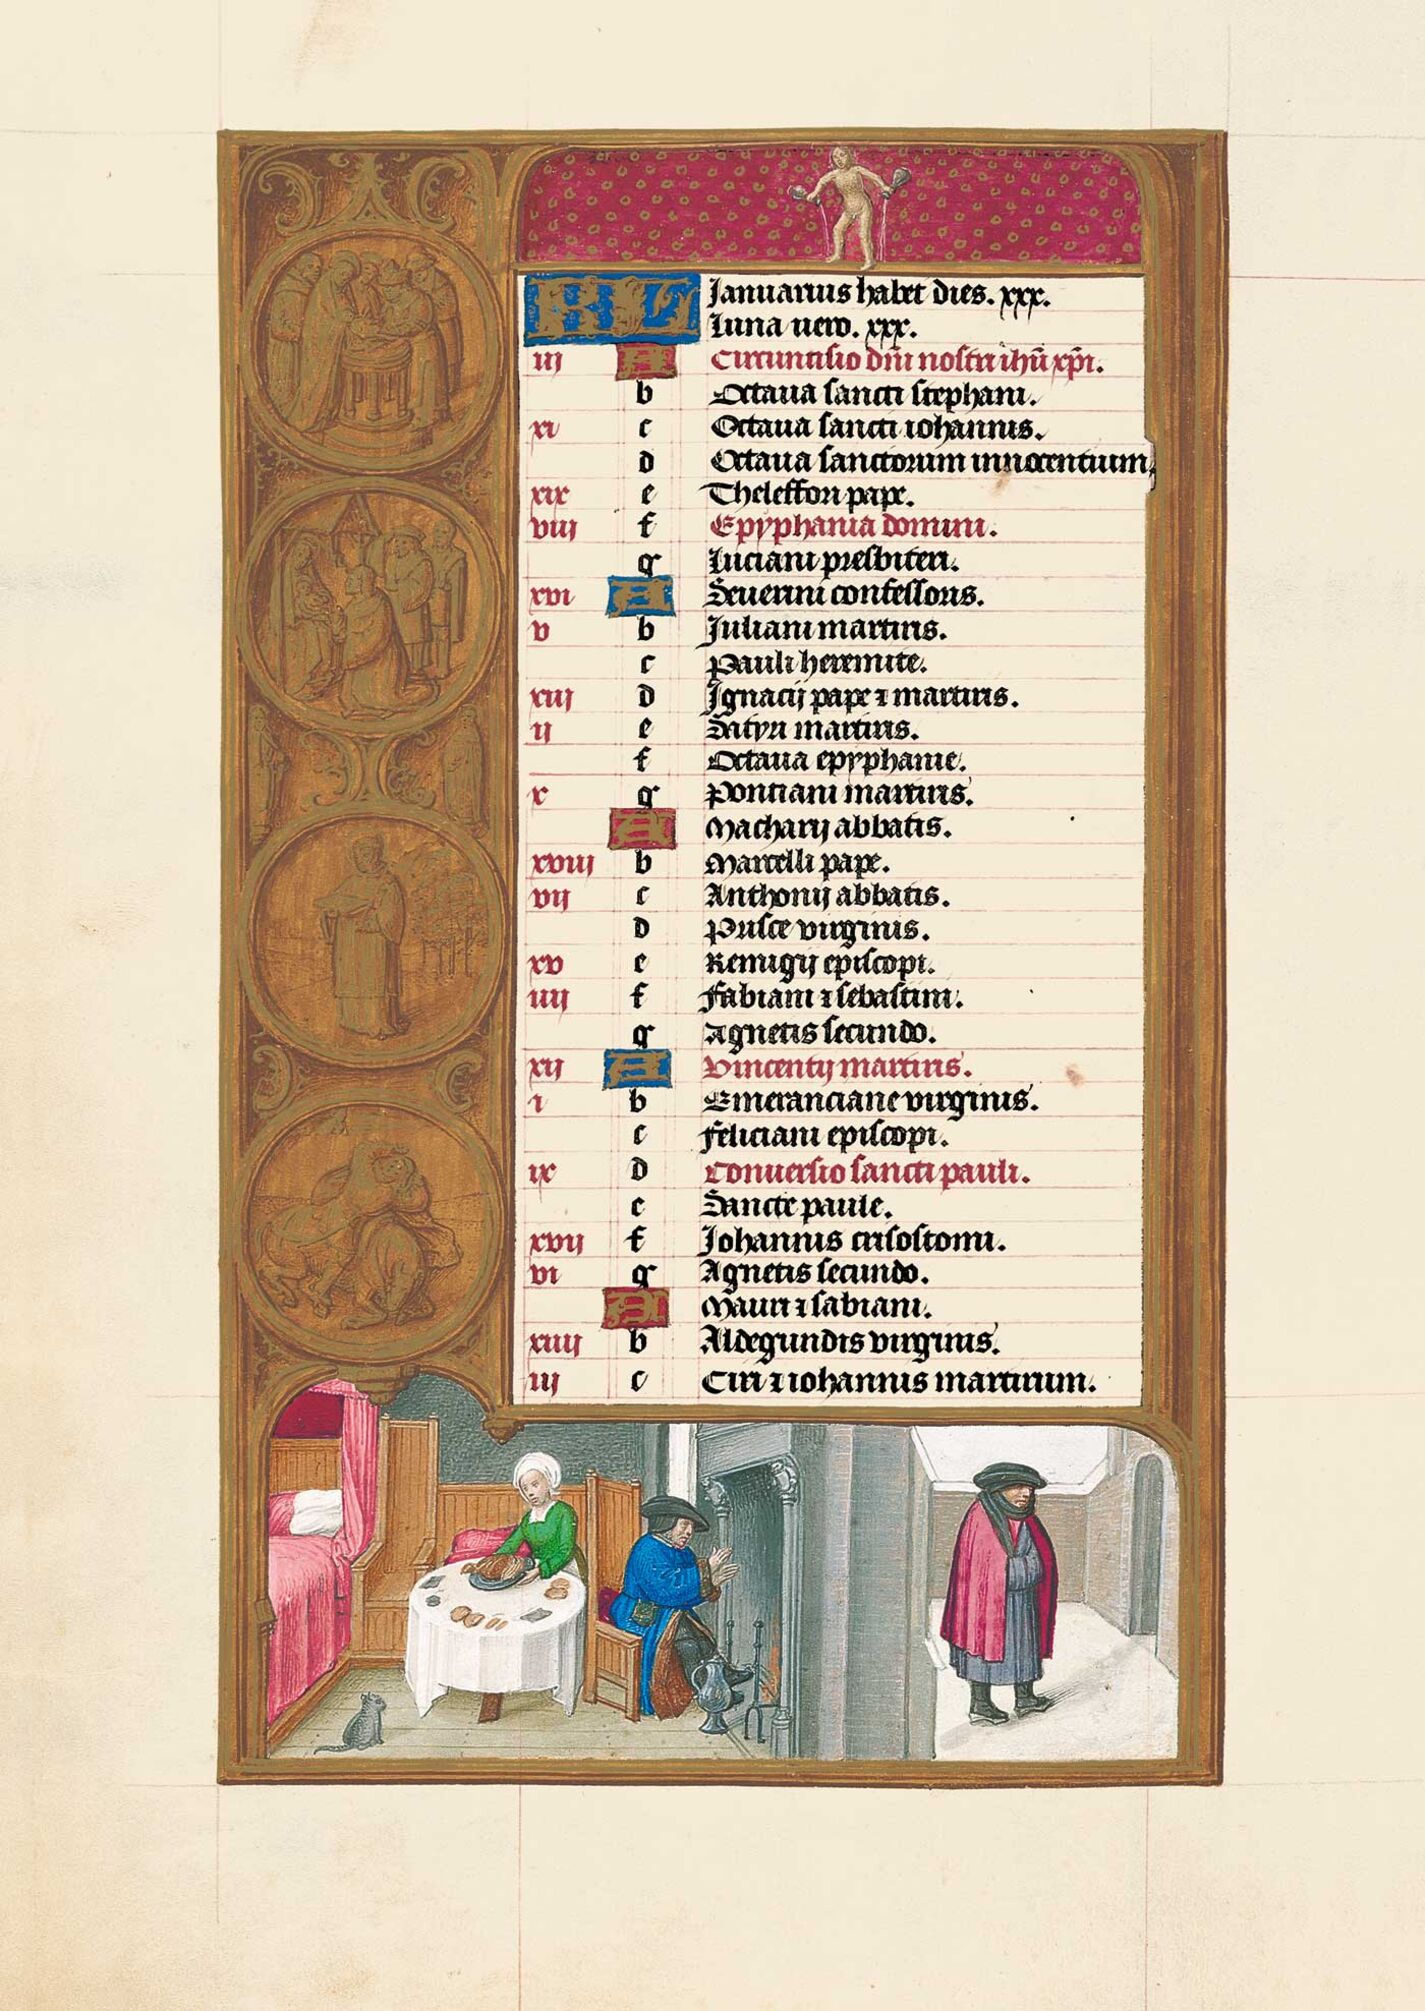 KL Januarius habet dies. xxx.
Luna uero. xxx.
iij A Circuncisio dni nostri ihu xpi.
b Octaua sancti stephani.
xi c Octaua sancti iohannis.
d Octaua sanctorum innocentium.
xix e Theleffori pape.
viij f Epyphania domini.
g Luciani presbiteri.
xvi A Seuerini confessoris.
v b Juliani martiris.
c Pauli heremite.
xiij d Ignacij pape et martiris.
ij e Satyri martiris.
f Octaua epyphanie.
x g Ponciani martiris.
A Macharij abbatis.
xviij b Marcelli pape.
vij c Anthonij abbatis.
d Prisce virginis.
xv e Remigij episcopi.
iiij f Fabiani et sebastini.
g Agnetis secundo.
xij A Vincentij martiris.
i b Emeranciane virginis.
c Feliciani episcopi.
ix d Conuersio sancti pauli.
e Sancte paule.
xvij f Johannis crisostomi.
vi g Agnetis secundo.
A Mauri et sabiani.
xiiij b Aldegundis virginis.
iij c Ciri et iohannis martirum.